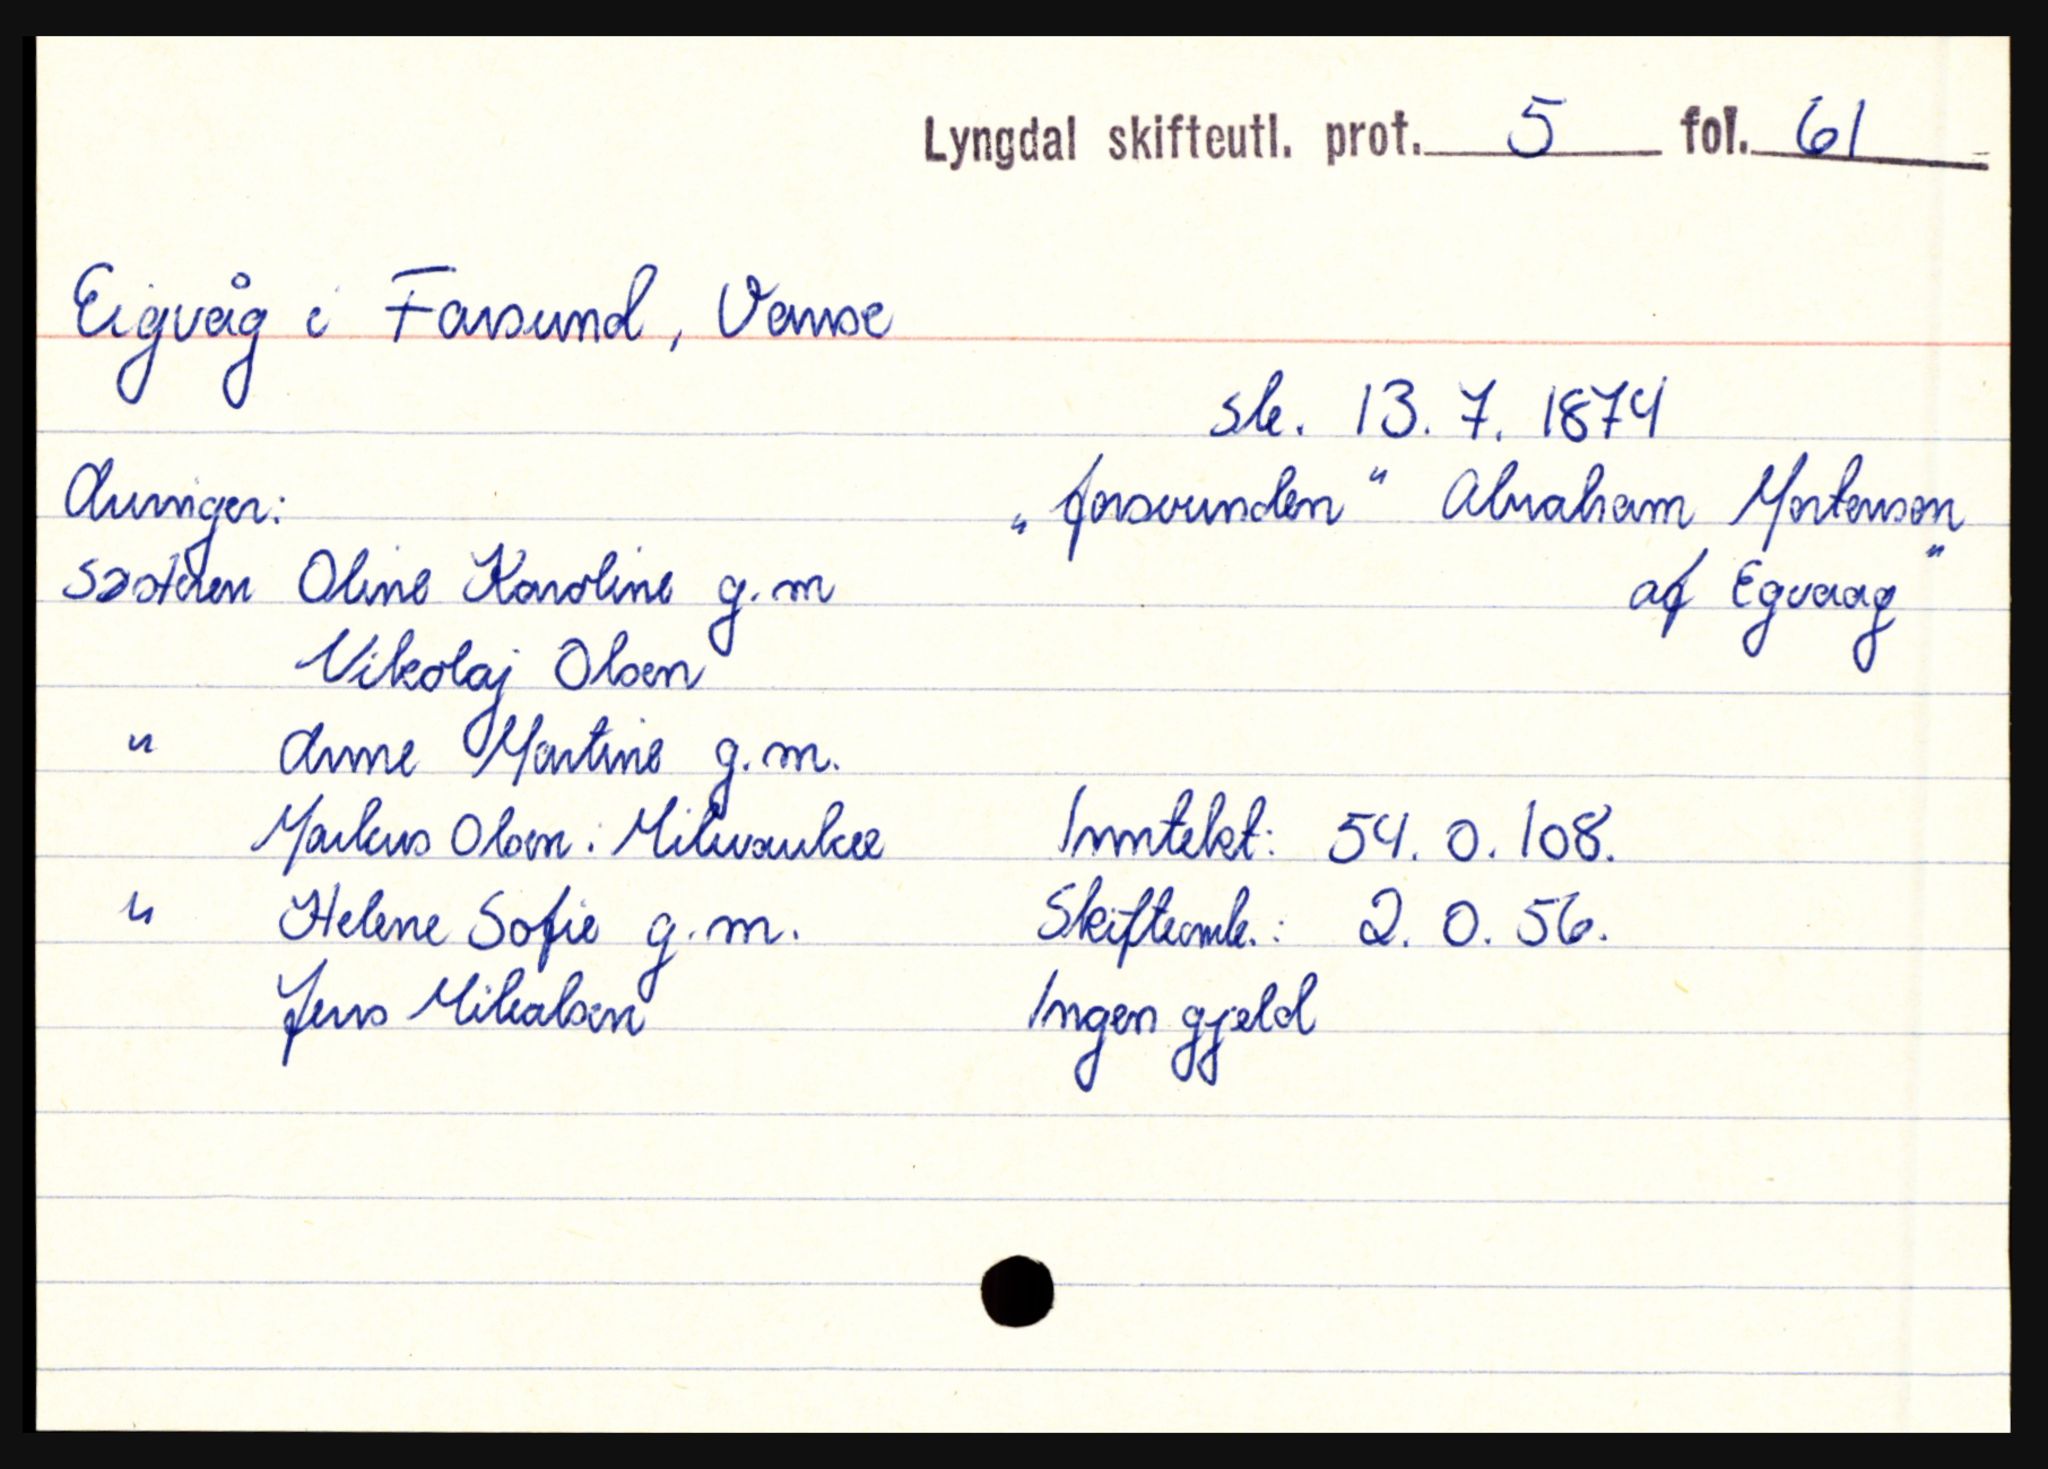 Lyngdal skifteutl. prot. 5 fol. 61
Eigvåg i Farsund, Vanse
sk. 13. 7. 1874
„forsvunden“ Abraham Mortensen
af Egvaag“
Arvinger:
Søsteren Oline Karoline g.m
Nikolaj Olsen
" Anne Martine g.m.
Markus Olsen i Milwaukee
" Helene Sofie g.m.
Jens Mikalsen
Inntekt: 54. 0. 108.
Skifteomk.: 2. 0. 56.
Ingen gjeld